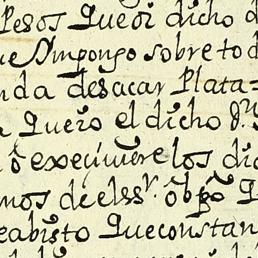 Pesos Que di dicho d
ue Ympongo sobre to d
nda de sacar Plata=
a Quero el dicho Dn
ō executiuere los dic
mos de el ssr. obpo Q
eabisto Que constan